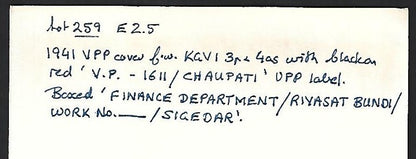 Lot 259 E2.5
1941 VPP cover f.w. KGVI 3p & 4as with black on
red 'V.P. - 1611/CHAUPATI' VPP label.
Boxed 'FINANCE DEPARTMENT/RIYASAT BUNDI/
WORK No.——/SIGEDAR'.